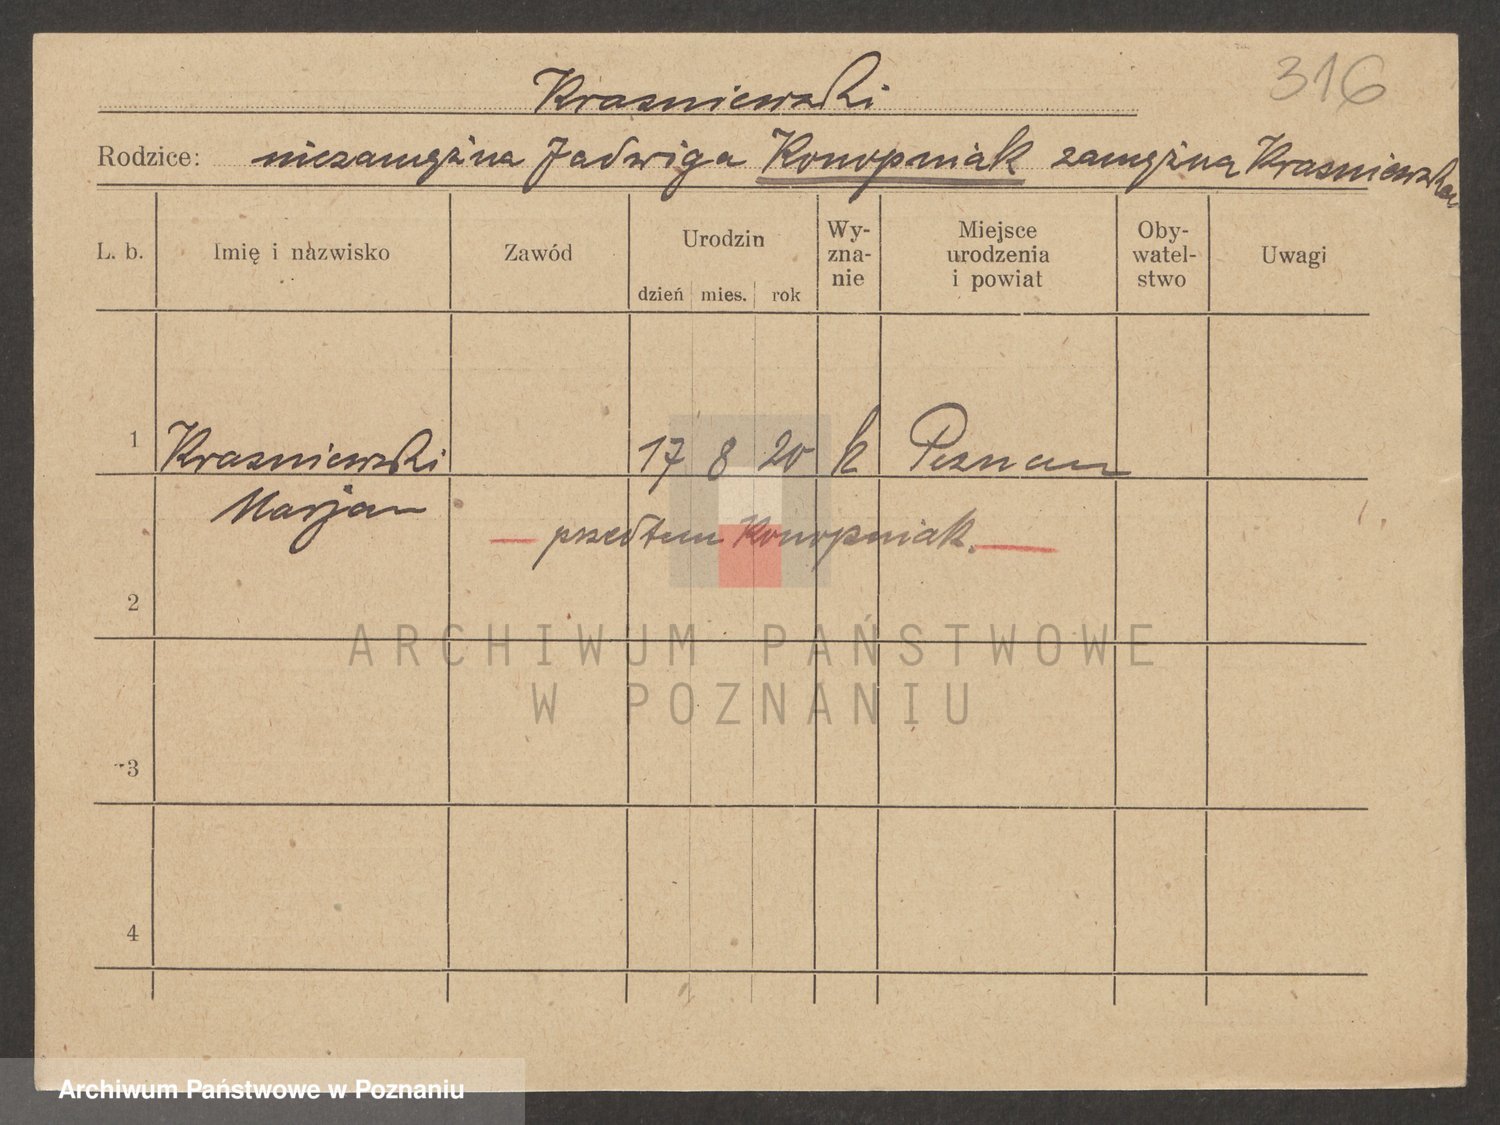 316
Krasniewski
Rodzice: niezamężna Jadwiga Konopniak zamężna Krasniewska
L. b. Imię i nazwisko Zawód Urodzin dzień mies. rok Wy-zna-nie Miejsce urodzenia i powiat Oby-watel-stwo Uwagi
1 Krasniewski 17 8 20 k Poznan
Marjan
przedtem Konopniak.
2
ARCHIWUM PAŃSTWOWE
W POZNANIU
3
4
Archiwum Państwowe w Poznaniu